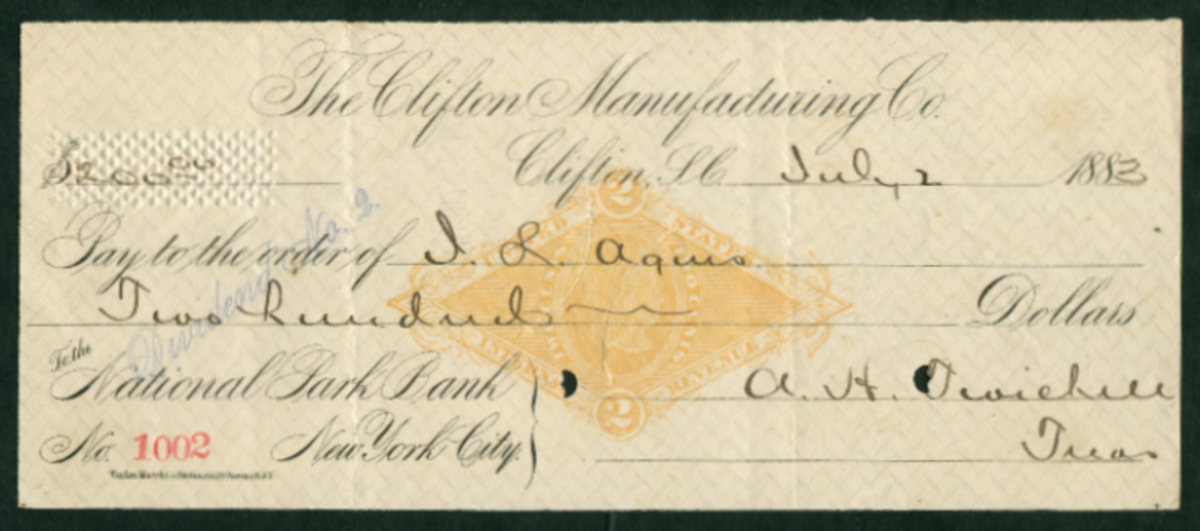 The Clifton Manufacturing Co.
$200 00 Clifton, S.C. July 2 1883
Dividend No. 2.
Pay to the order of I. L.
Two Hundred Dollars
To the
National Park Bank A. H. Twichell
No. 1002 New York City. Treas
2
UNITED STATES
INTERNAL REVENUE
TWO CENTS
2